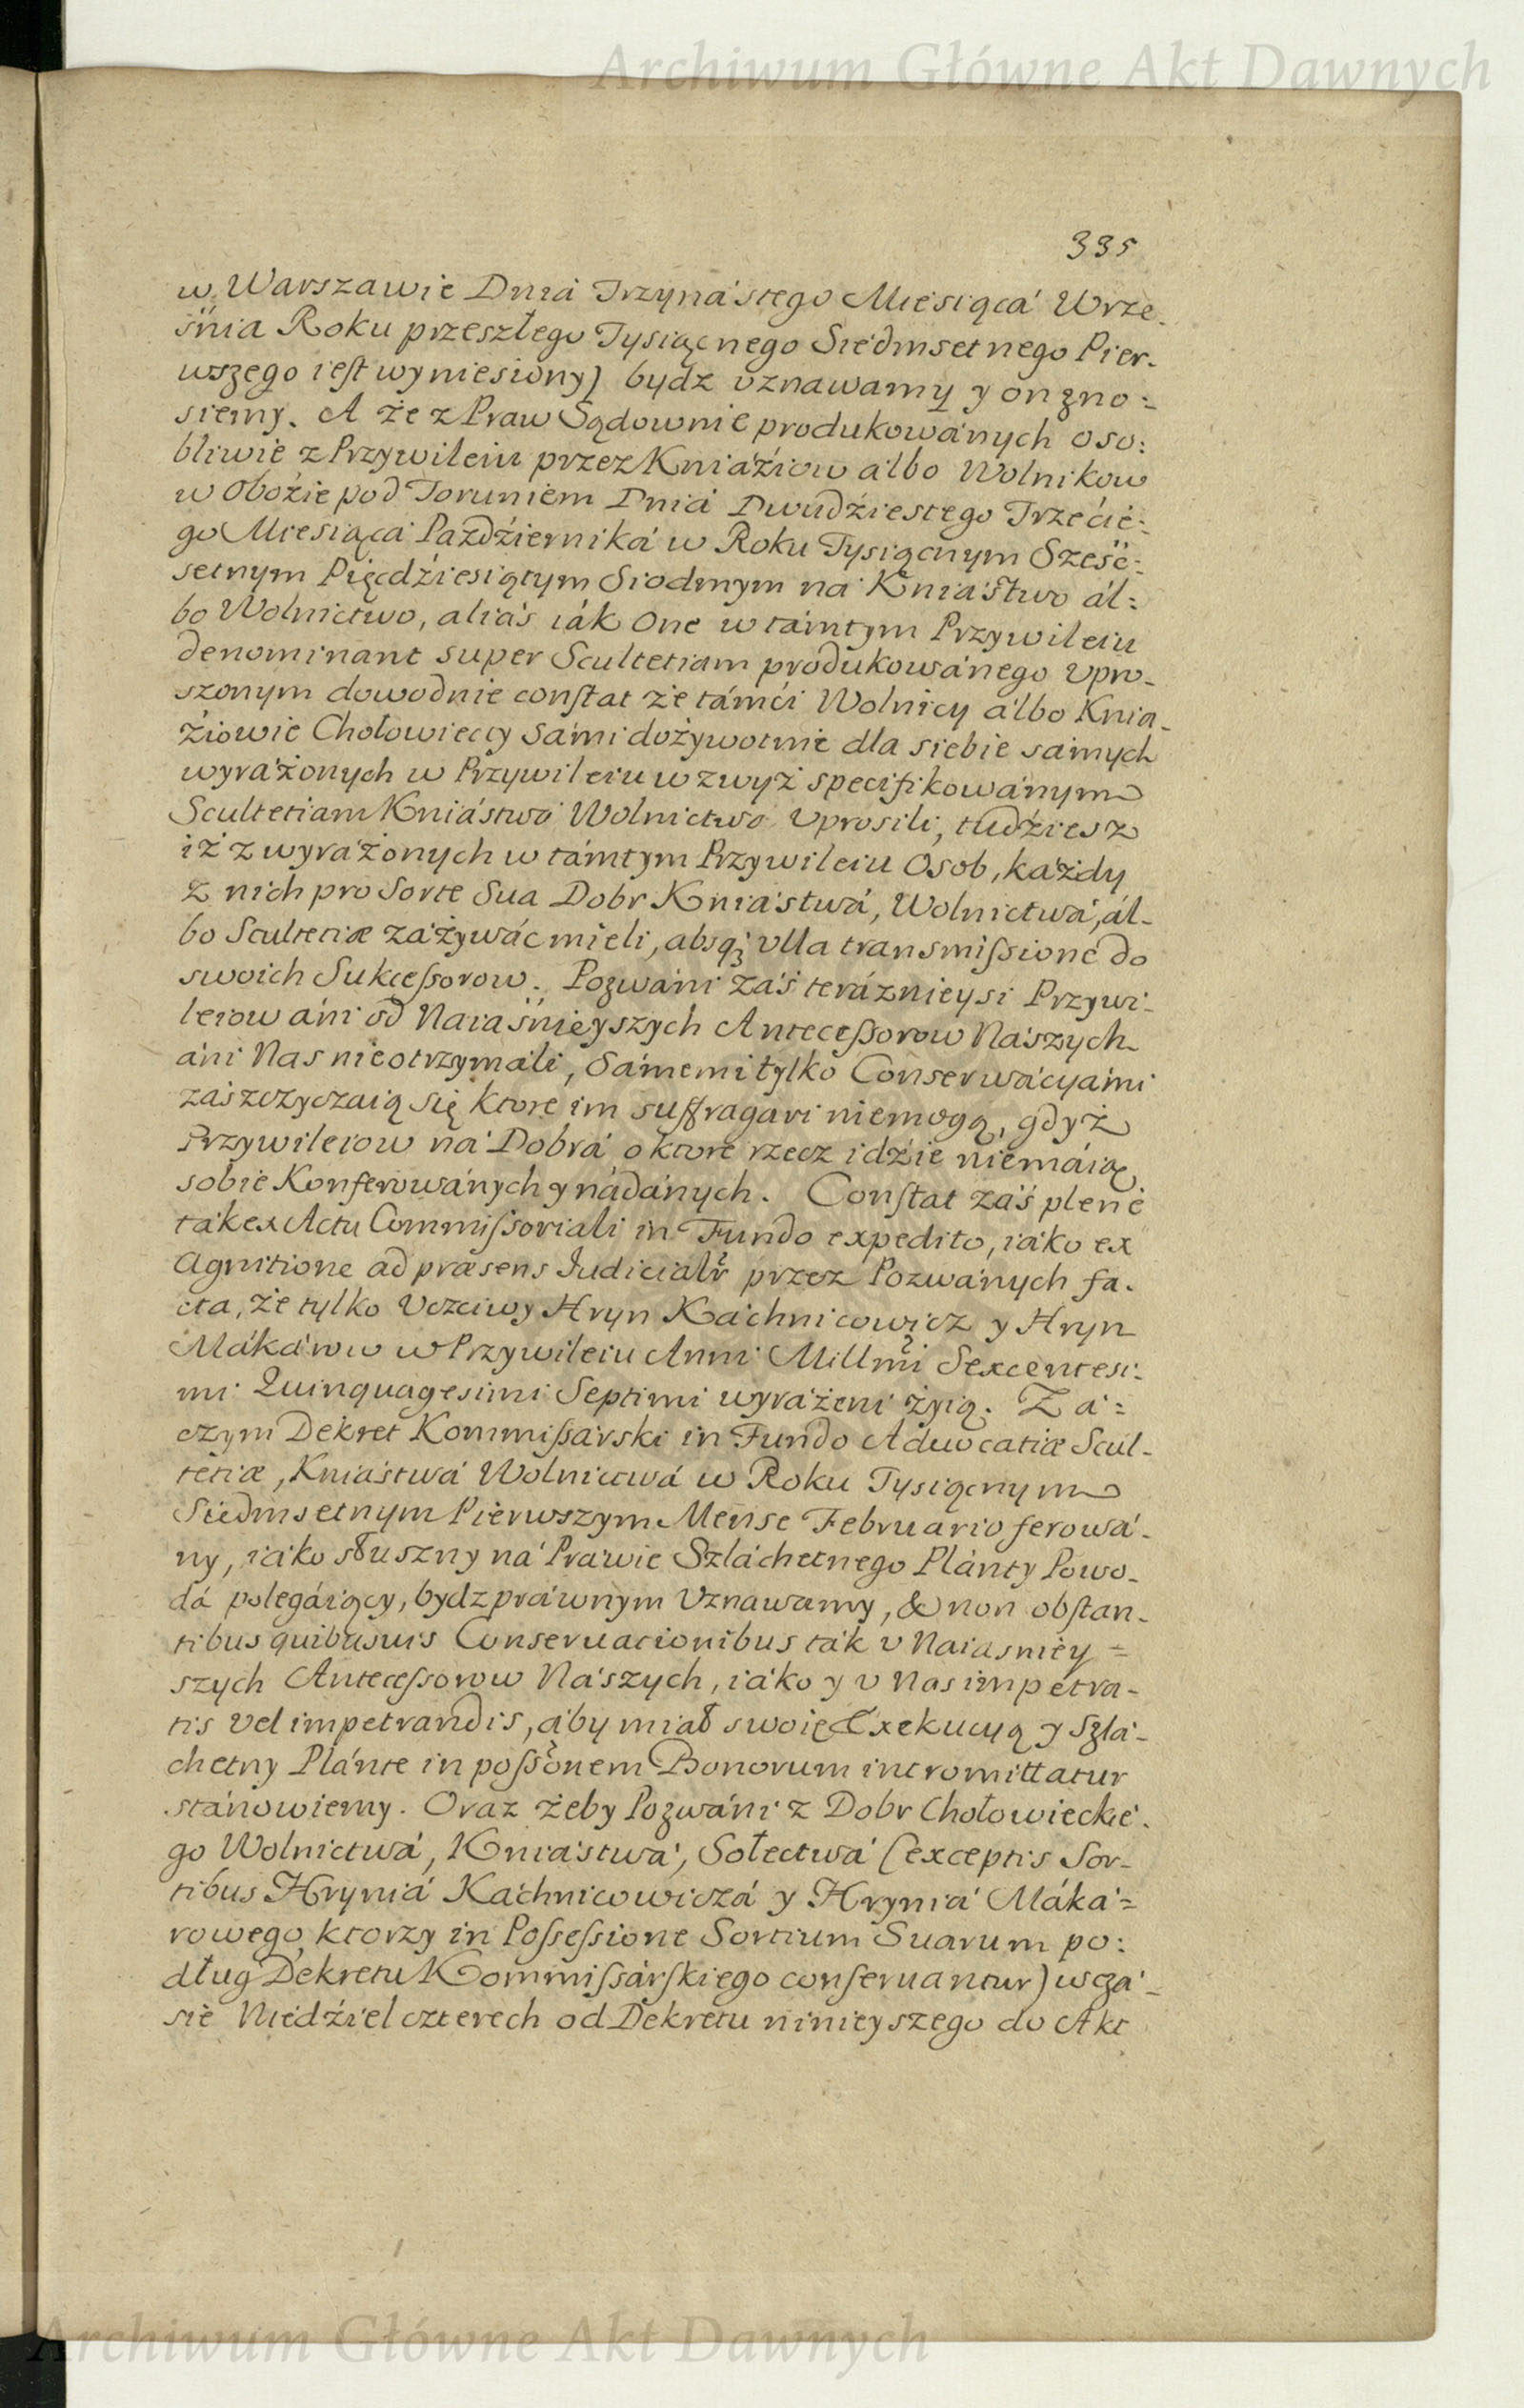 Archiwum Główne Akt Dawnych
335
w Warszawie Dnia Trzynástego Miesiącá Wrze-
śnia Roku przeszłego Tysiącnego Siedmsetnego Pier-
wszego iest wyniesiony) bydz uznawamy y on zno:
siemy. A że z Praw Sądownie produkowánych oso:
bliwie z Przywileiu przez Kniáźiow álbo Wolnikow
w Obozie pod Toruniem Dniá Dwudźiestego Trzećie:
go Miesiąca Paźdźierniká w Roku Tysiącnym Sześć:
setnym Pięcdźiesiątym Siodmym ná Kniaśtwo ál:
bo Wolnictwo, aliás iák One w támtym Przywileiu
denominant super Scultetiam produkowánego vpro-
szonym dowodnie constat że támći Wolnicy álbo Knia-
źiowie Chołowieccy Sámi dożywotnie dla siebie sámych
wyráżonych w Przywileiu wzwyż specifikowánym
Scultetiam Kniástwo Wolnictwo Vprosili, tudźiesz
iż z wyráżonych w támtym Przywileiu Osob, káżdy
z nich pro Sorte Sua Dobr Kniástwá, Wolnictwá, ál-
bo Scultetiæ záżywáć mieli, absq; vlla transmissione do
swoich Sukcessorow. Pozwáni záś teráznieysi Przywi-
leiow áni od Naiaśnieyszych Antecessorow Nászych
áni Nas nieotrzymáli, Sámemi tylko Conserwácyámi
zászczyczáią się ktore im suffragari niemogą, gdyż
Przywileiow ná Dobrá o ktore rzecz idźie niemáią
sobie Konferowánych y nádánych. Constat záś plene
ták ex Actu Commissoriali in Fundo expedito, iáko ex
Agnitione ad præsens Iudicialr przez Pozwánych fa-
cta, że tylko Vczciwy Hryn Káchnicowicz y Hryn
Mákárow w Przywileiu Anni Millmi Sexcentesi-
mi Quinquagesimi Septimi wyráżeni żyią. Zá=
czym Dekret Kommissárski in Fundo Advocatiæ Scul-
tetiæ, Kniástwá Wolnictwá w Roku Tysiącnym
Siedmsetnym Pierwszym Mense Februario ferowá-
ny, iáko słuszny ná Práwie Szláchetnego Plánty Powo-
dá polegáiący, bydz práwnym Vznawamy, & non obstan-
tibus quibusvis Conservationibus ták v Naiasniey=
szych Antecessorow Nászych, iáko y v Nas impetra-
tis vel impetrandis, áby miał swoię Exekucyą y Szlá-
chetny Plánte in possonem Bonorum intromittatur
stánowiemy. Oraz żeby Pozwáni z Dobr Chołowieckie-
go Wolnictwá, Kniástwá, Sołectwá (exceptis Sor-
tibus Hryniá Káchnicowiczá y Hryniá Máká=
rowego ktorzy in Possessione Sortium Suarum po:
dług Dekretu Kommissárskiego conservantur) w czá-
sie Niedźiel czterech od Dekretu ninieyszego do Akt
Archiwum Główne Akt Dawnych